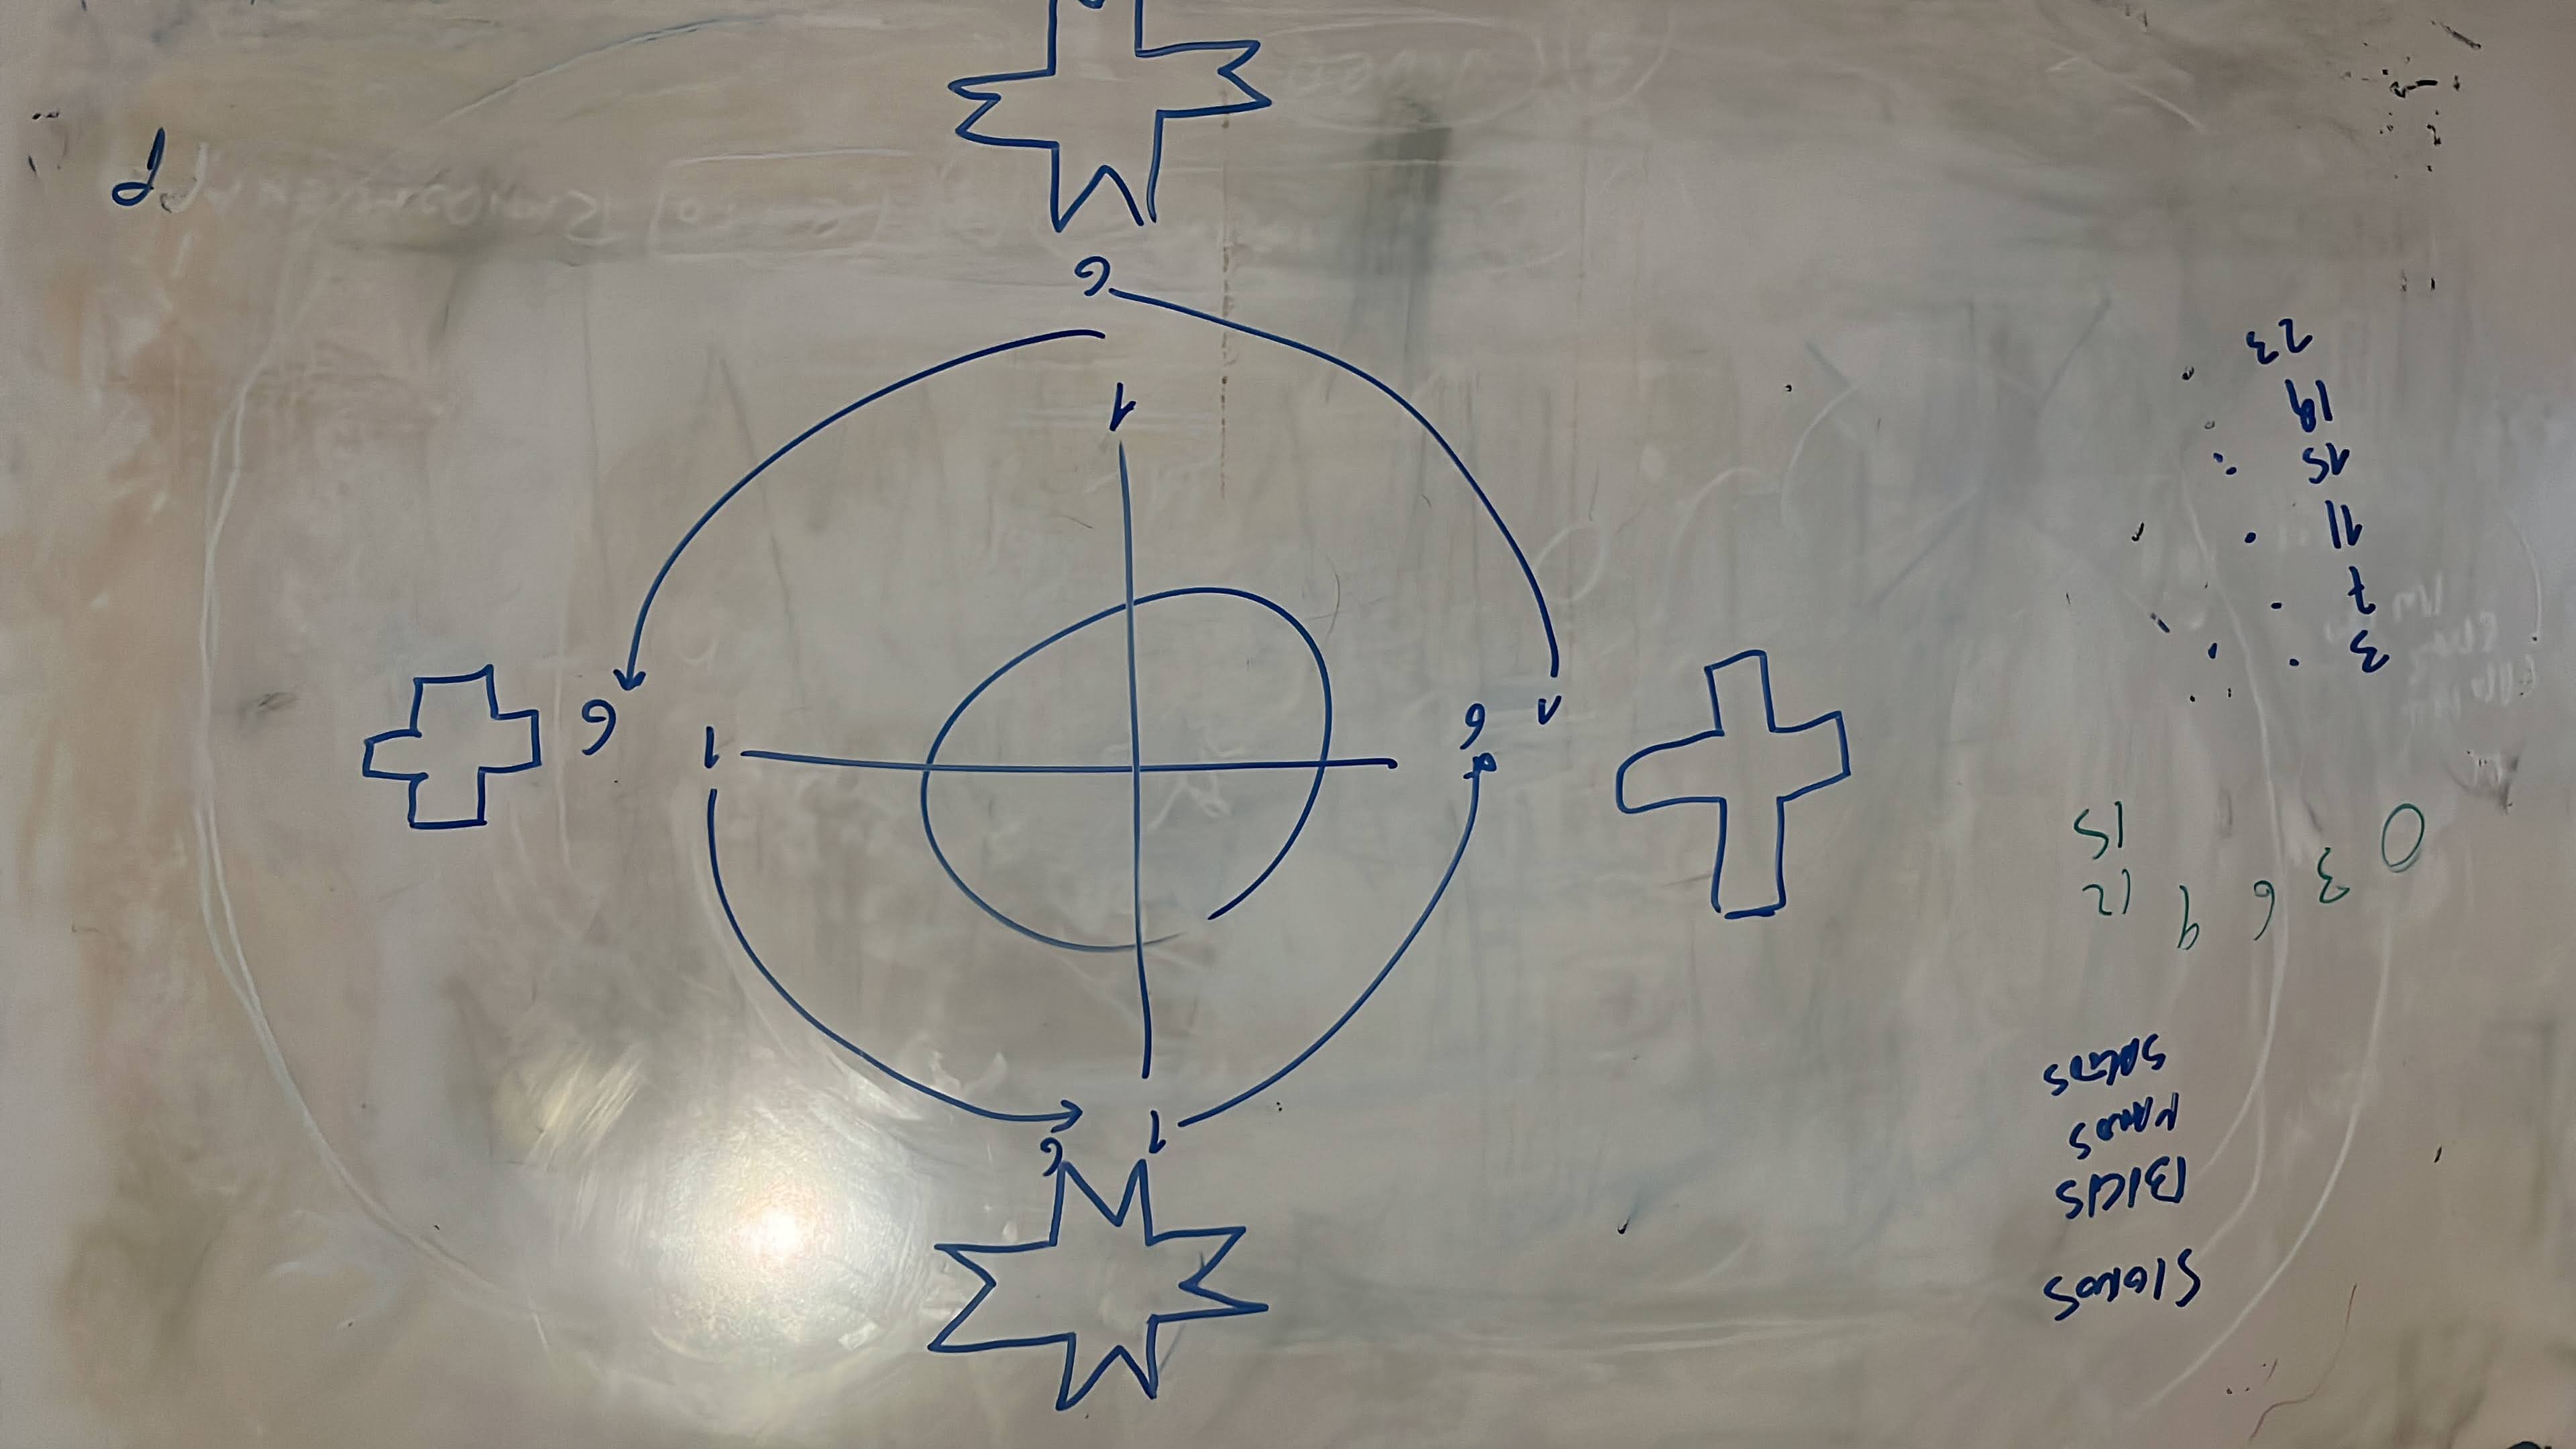 SIGNOS
BICIS
MANOS
SALTOS
0 3 6 9 12
15
3
7
11
15
19
23
1 6
1 6
1 6
1
6
P